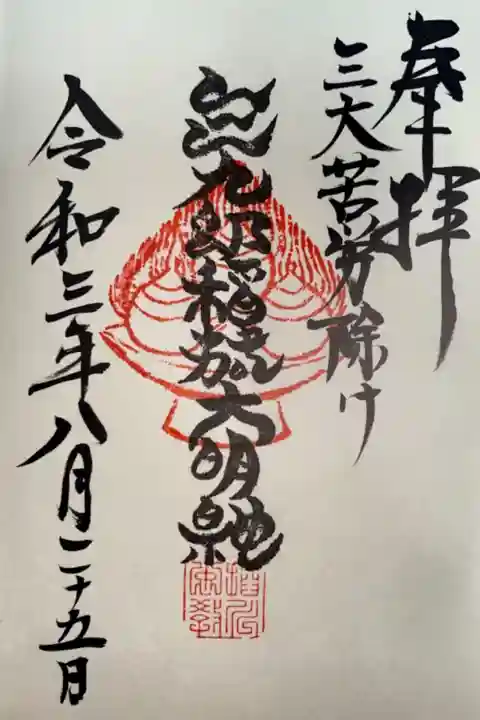 奉拝
三大苦労除け
九郎稲荷大明神
令和三年八月二十五日